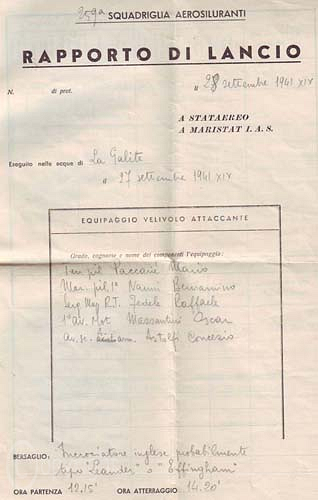 259a SQUADRIGLIA AEROSILURANTI
RAPPORTO DI LANCIO
N. di prot. 28 settembre 1941 XIX
A STATAEREO
A MARISTAT I. A. S.
Eseguito nelle acque di La Galite
27 settembre 1941 XIX
EQUIPAGGIO VELIVOLO ATTACCANTE
Grado, cognome e nome dei componenti l'equipaggio:
Ten pil Mario
Mar. pil 1ª Nanni Beniamino
Serg Mag R.T. Fedele Raffaele
1º Av. Mot Massantini Oscar
Av. sc. arm Astolfi Concezio
BERSAGLIO: Incrociatore inglese probabilmente
tipo "Leander" o "Effingham"
ORA PARTENZA 12.15' ORA ATTERRAGGIO 14.20'